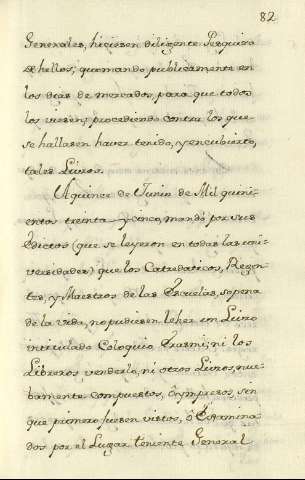 82
Generales, hiciesen diligente Pesquisa
de hellos; quemando publicamente en
los dias de mercados, para que todos
los viesen; procediendo contra los que
se hallasen haver tenido, y encubierto,
tales Livros.
A quince de Junio de Mil quini-
entos treinta y cinco, mandó por sus
Edictos (que se leyeron en todas las uni-
versidades) que los Catredaticos, Regen-
tes, y Maestros de las Escuelas, so pena
de la vida, no pudiesen leher un Livro
intitulado Coloquio Erasmi; ni los
Libreros venderlo, ni otros Livros, nue-
bamente compuestos, ô ympresos, sin
que primero fuesen vistos, ô Examina-
dos por el Lugar teniente General